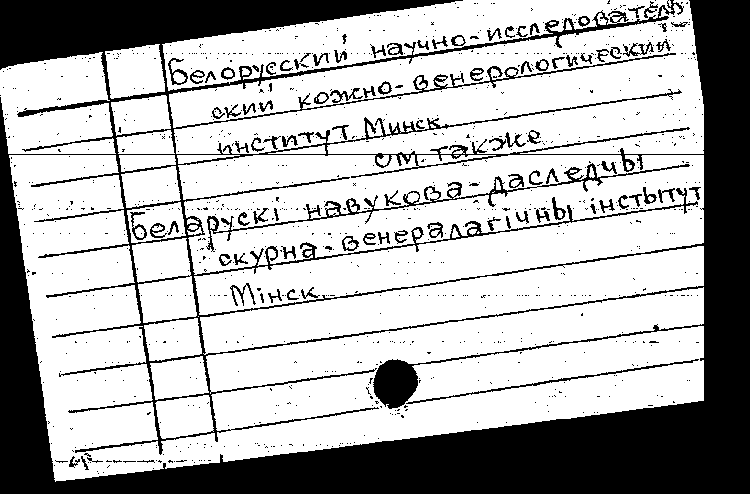 Белорусский научно-исследователь
ский кожно-венерологический
институт. Минск.
см. также
Беларускі навукова-даследчы
скурна-венералагічны інстытут
Мінск.